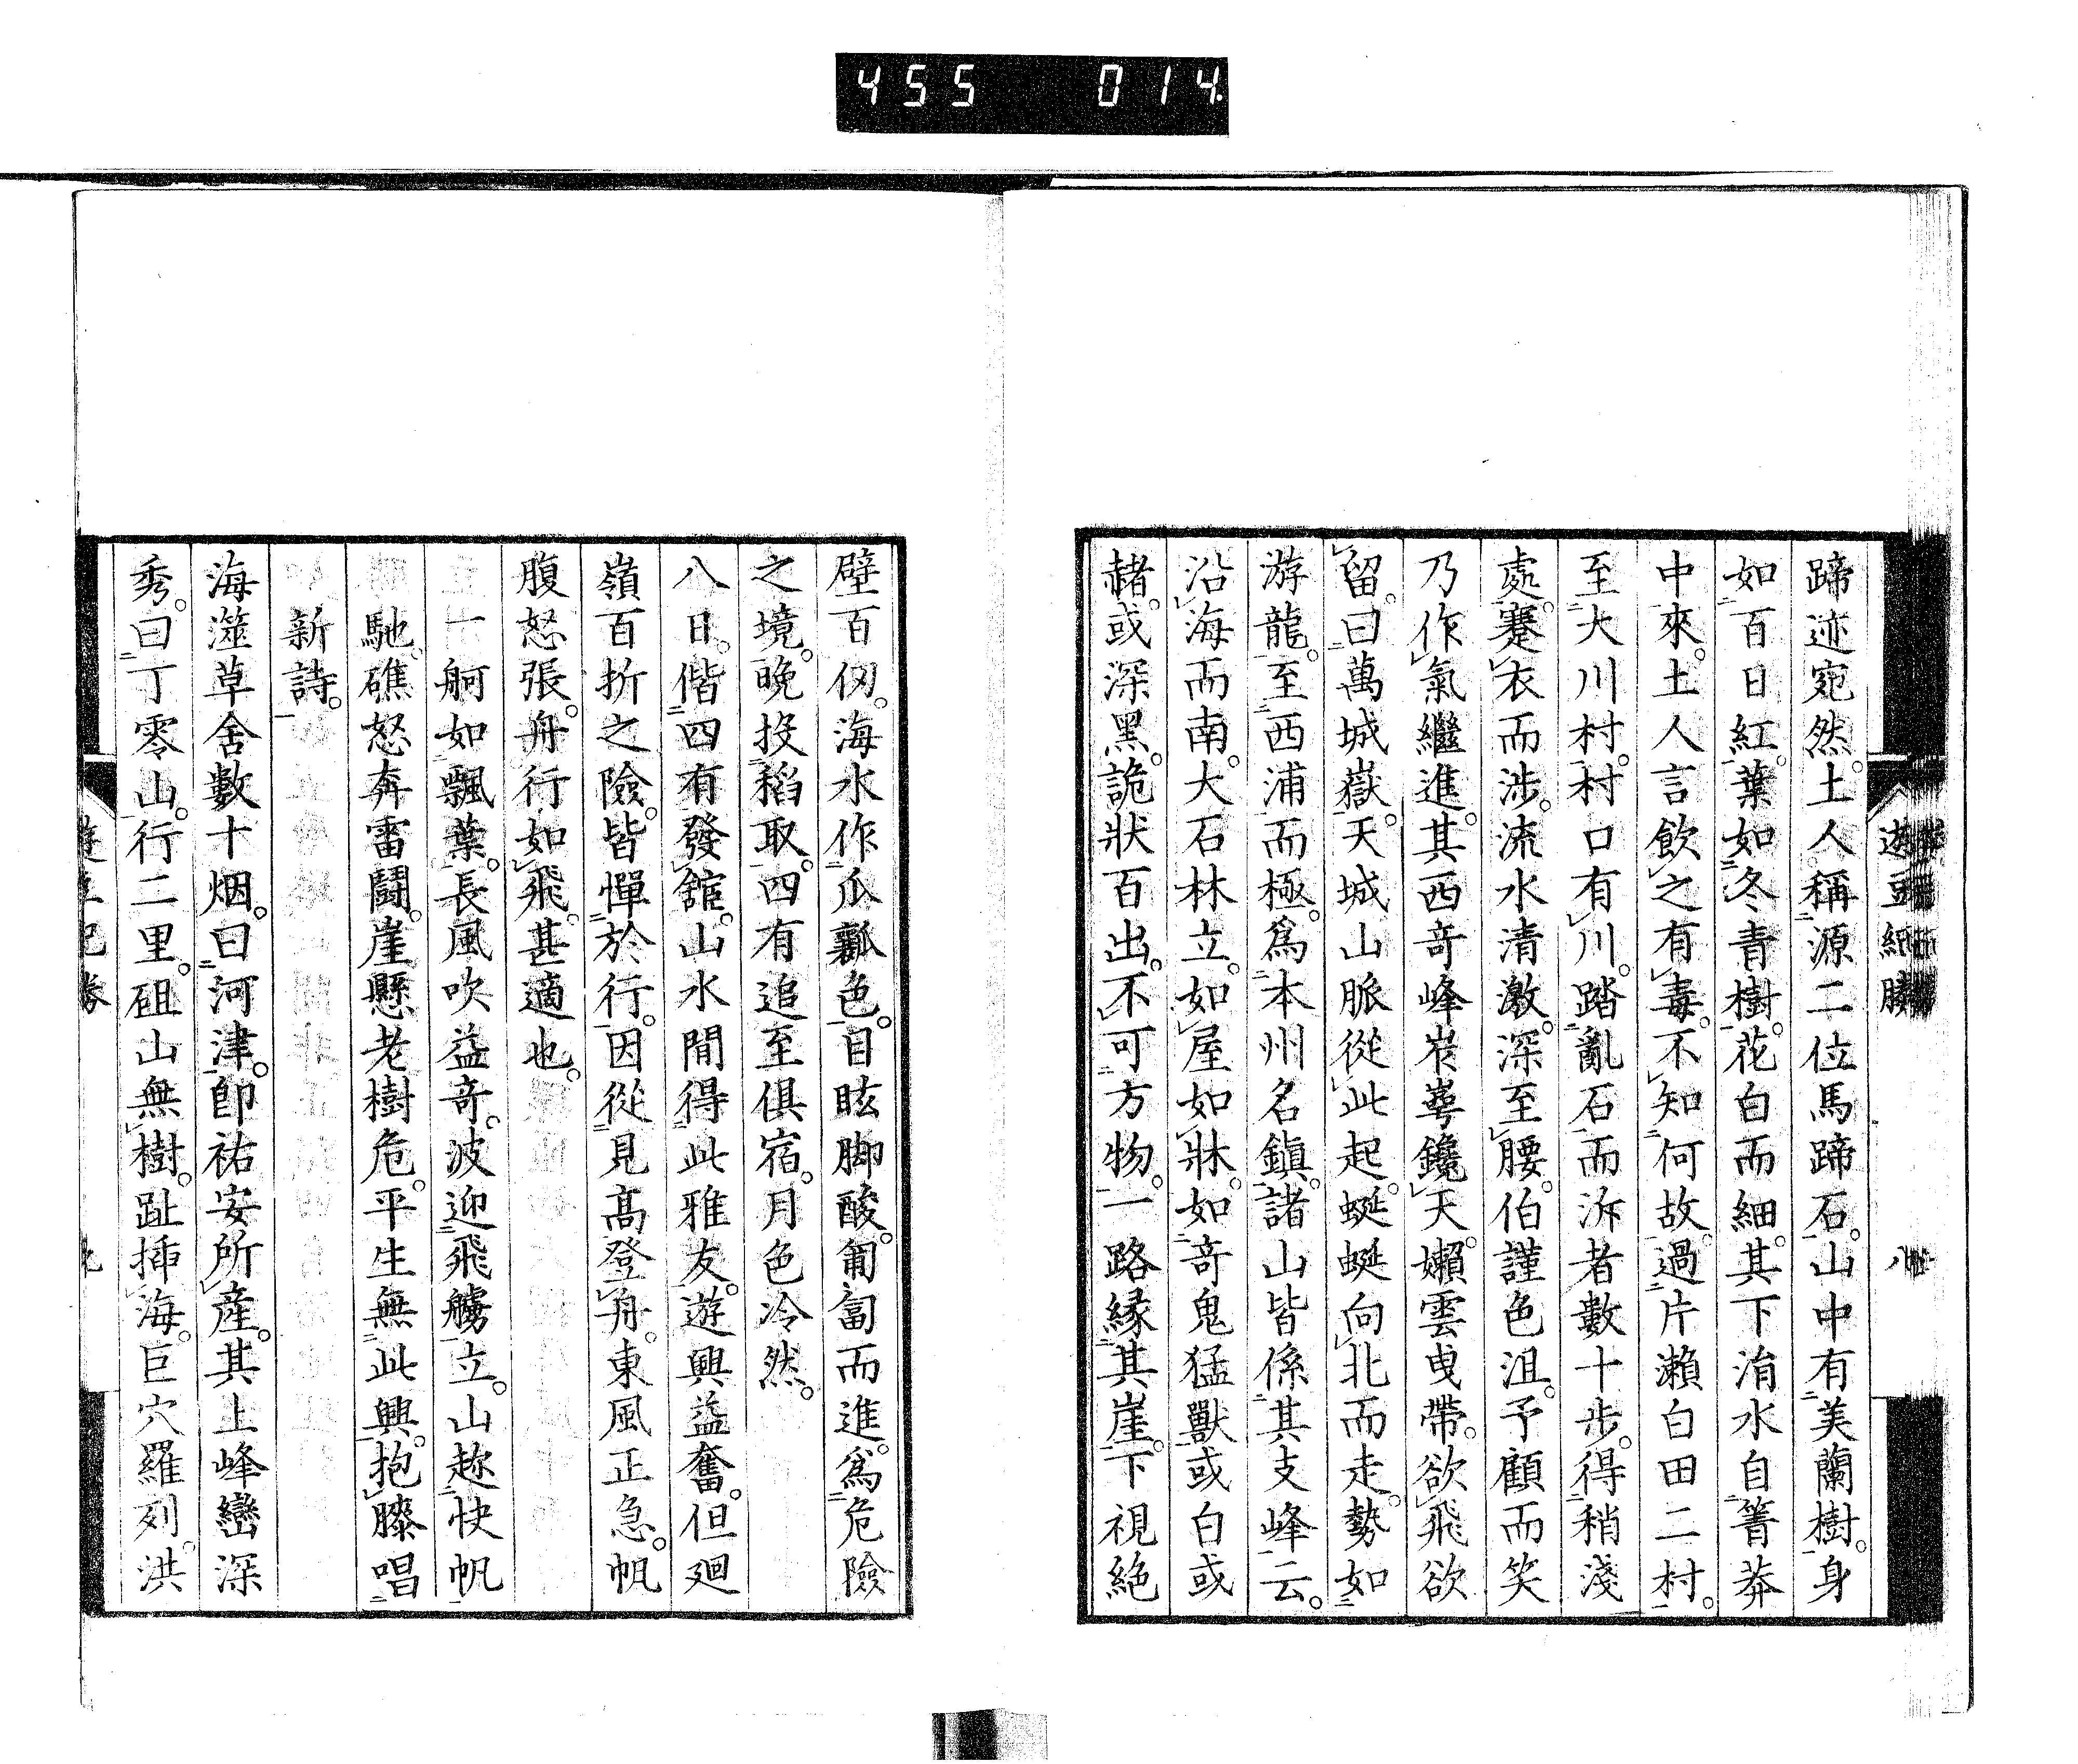 455 014
遊豆紀勝 八
蹄迹宛然。土人稱源二位馬蹄石。山中有美蘭樹。身
如百日紅。葉如冬青樹。花白而細。其下洧水自箐莽
中來。土人言飲之有毒。不知何故。過片瀨白田二村。
至大川村。村口有川。踏亂石而泝者數十步。得稍淺
處。褰衣而涉。流水清激。深至腰。伯謹色沮。予顧而笑
乃作氣繼進。其西奇峰岝崿鑱天。嬾雲曳帶。欲飛欲
留。曰萬城嶽。天城山脈從此起。蜒蜒向北而走。勢如
游龍。至西浦而極。爲本州名鎭。諸山皆係其支峰云。
沿海而南。大石林立。如屋如牀。如奇鬼猛獸或白或
赭。或深黑。詭狀百出。不可方物。一路緣其崖。下視絶
壁百仭。海水作瓜瓤色。目眩脚酸。匍匐而進。爲危險
之境。晚投稻取。四有追至俱宿。月色冷然。
八日。偕四有發舘。山水間得此雅友。遊興益奮。但廻
嶺百折之險。皆憚於行。因從見高登舟。東風正急。帆
腹怒張。舟行如飛。甚適也。
一舸如飄葉。長風吹益奇。波迎飛艣立。山趂快帆
馳。礁怒奔雷鬪。崖懸老樹危。平生無此興。抱膝唱
新詩。
海澨草舍數十烟。曰河津。卽祐安所產。其上峰巒深
秀。曰丁零山。行二里。砠山無樹。趾揷海。巨穴羅列。洪
遊豆紀勝 九